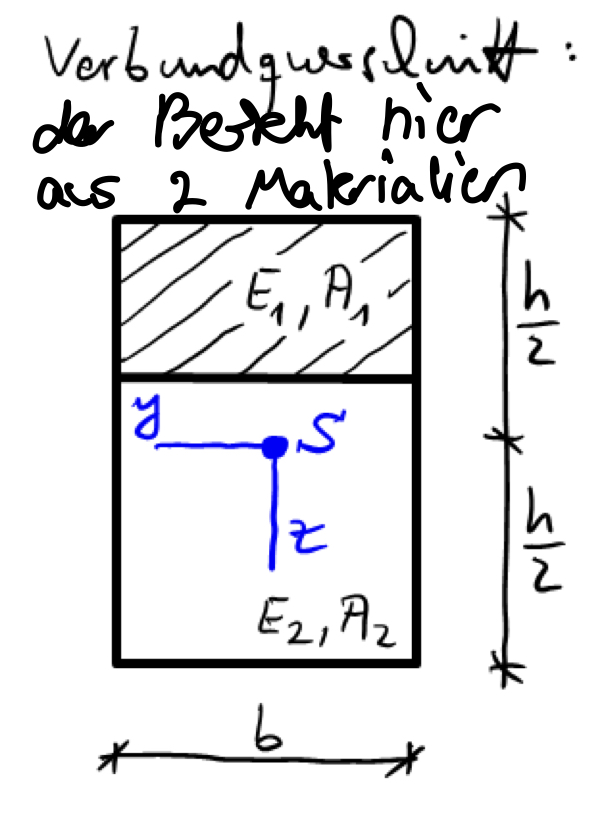 Verbundquerschnitt:
der Besteht hier
aus 2 Materialien
E₁, A₁
h/2
y S
z
h/2
E₂, A₂
b